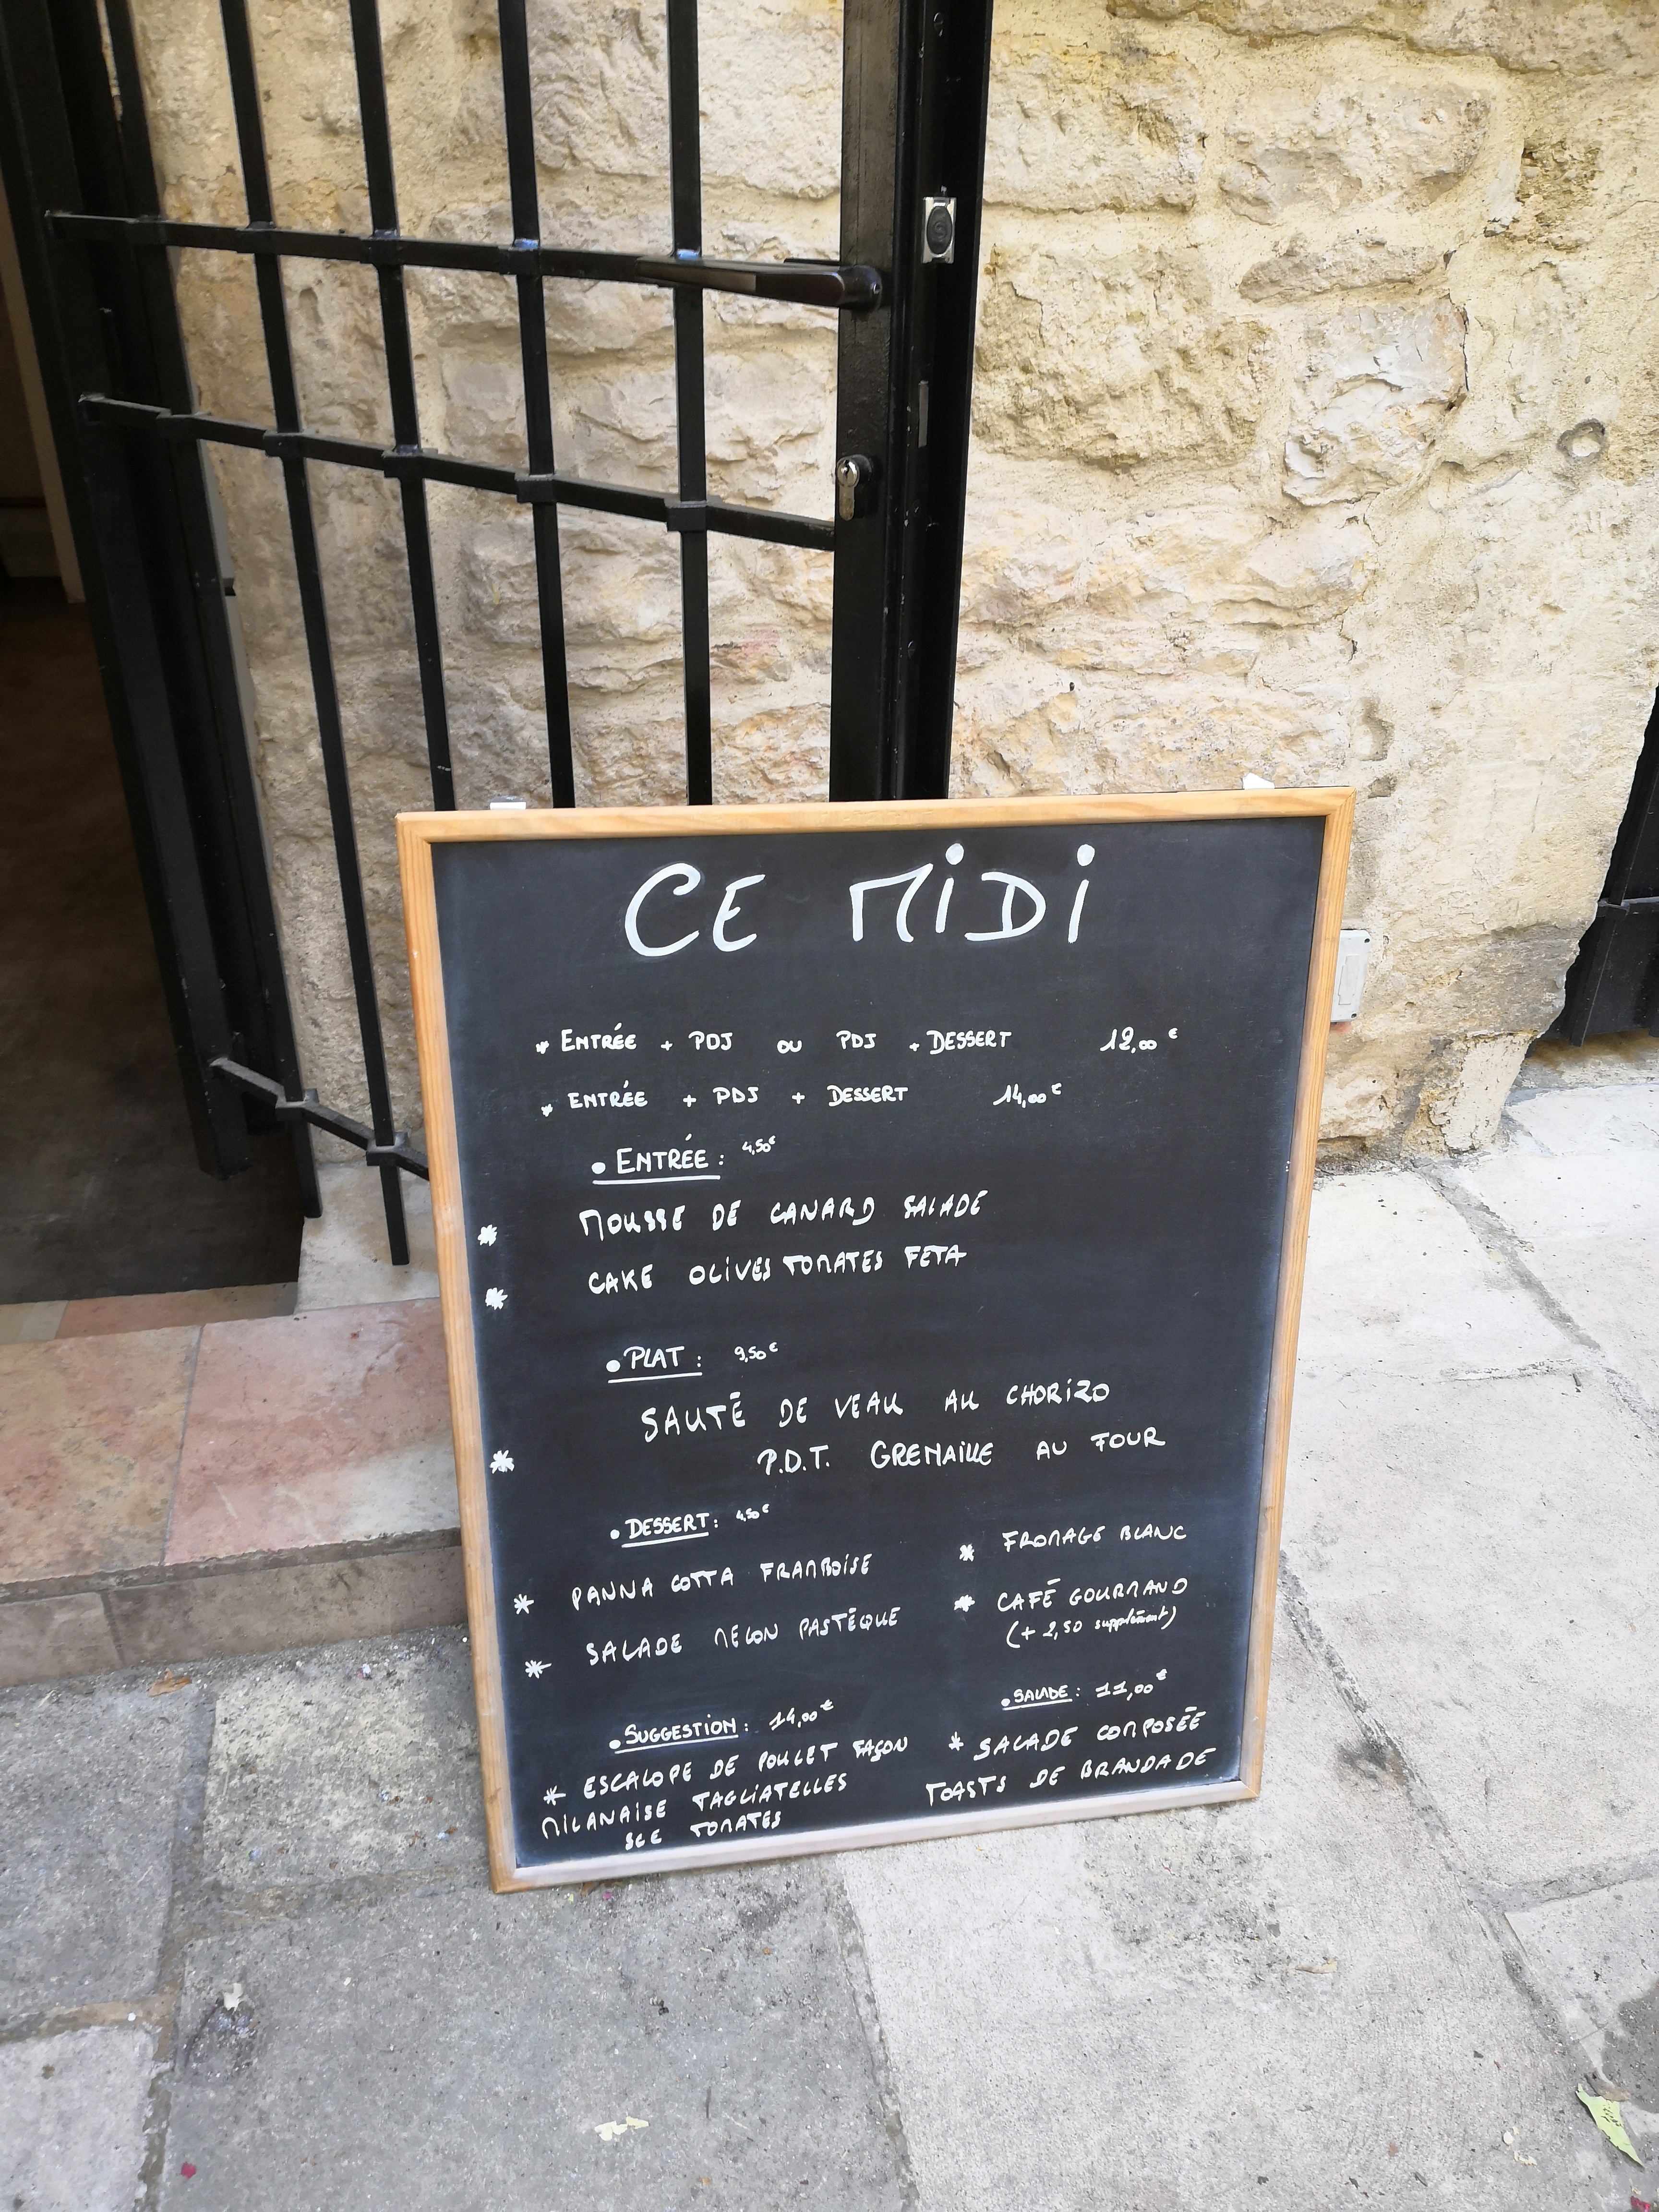 CE MiDi
* ENTRÉE + PDJ OU PDJ + DESSERT 12,00 €
* ENTRÉE + PDJ + DESSERT 14,00 €
• ENTRÉE : 4,50€
* MOUSSE DE CANARD SALADE
* CAKE OLIVES TOMATES FETA
• PLAT : 9,50€
SAUTÉ DE VEAU AU CHORIZO
* P.D.T. GRENAILLE AU FOUR
• DESSERT : 4,50€
* PANNA COTTA FRAMBOISE
* SALADE MELON PASTÈQUE
* FROMAGE BLANC
* CAFÉ GOURMAND
(+ 2,50 supplément)
• SUGGESTION : 14,00€
* ESCALOPE DE POULET FAÇON
MILANAISE TAGLIATELLES
SCE TOMATES
• SALADE : 11,00€
* SALADE COMPOSÉE
TOASTS DE BRANDADE